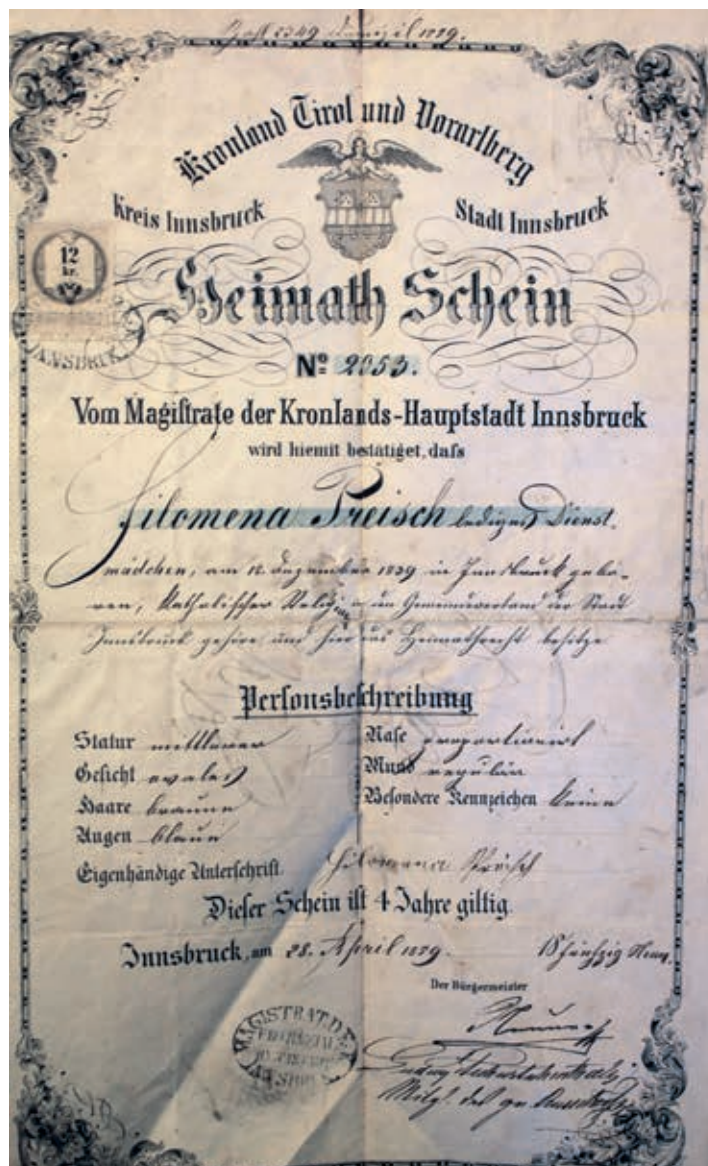 Zahl 2349 1879.
Kronland Tirol und Vorarlberg
Kreis Innsbruck
Stadt Innsbruck
12
kr.
INNSBRUCK
Heimath Schein
No 2053.
Vom Magistrate der Kronlands-Hauptstadt Innsbruck
wird hiemit bestätiget, dass
Filomena Preisch lediges Dienst-
mädchen, am 12. Dezember 1839 in Innsbruck gebo-
ren, katholischer Religion, in den Gemeindeverband der Stadt
Innsbruck gehöre und hier das Heimathrecht besitze
Personsbeschreibung
Statur mittlerer
Nase proportionirt
Gesicht ovales
Mund regulär
Haare braune
Besondere Kennzeichen keine
Augen blaue
Eigenhändige Unterschrift. Filomena
Dieser Schein ist 4 Jahre giltig.
Innsbruck, am 28. April 1879.
Der Bürgermeister
MAGISTRAT DER